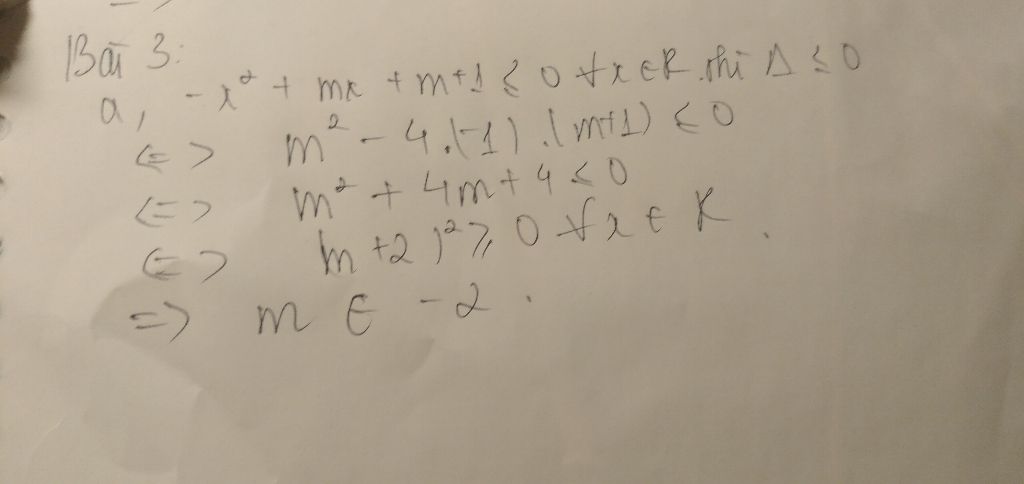 Bài 3:
a, -x² + mx + m+1 ≤ 0 ∀x∈R thì Δ ≤ 0
<=> m² - 4.(-1).(m+1) ≤ 0
<=> m² + 4m + 4 ≤ 0
<=> (m+2)² ≥ 0 ∀x ∈ R.
=> m ∈ -2.